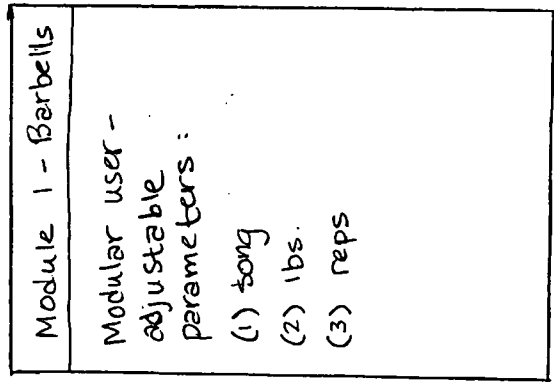 Module 1 - Barbells
Modular user-
adjustable
parameters:
(1) song
(2) lbs.
(3) reps